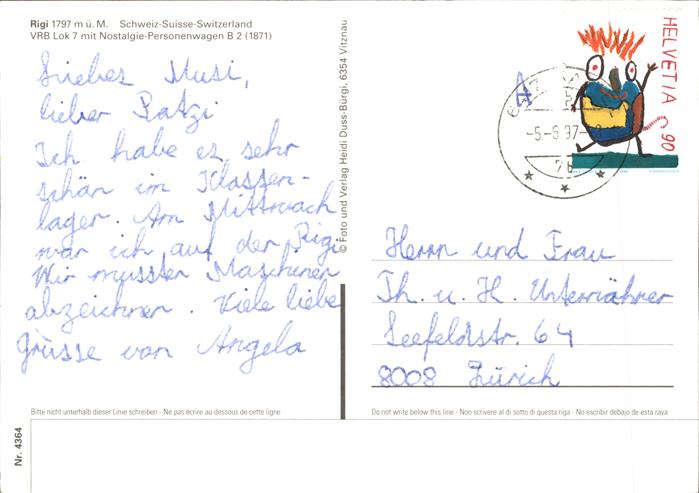 Rigi 1797 m ü. M. Schweiz-Suisse-Switzerland
VRB Lok 7 mit Nostalgie-Personenwagen B 2 (1871)
Liebes Musi,
lieber Patzi
Ich habe es sehr
schön im Klassen-
lager. Am Mittwoch
war ich auf der Rigi.
Wir mussten Maschinen
abzeichnen. Viele liebe
Grüsse von Angela
Bitte nicht unterhalb dieser Linie schreiben - Ne pas écrire au dessous de cette ligne
Nr. 4364
© Foto und Verlag Heidi Duss-Bürgi, 6354 Vitznau
HELVETIA
90
-5.-6.97-
Herrn und Frau
Th. u. H. Unternährer
Seefeldstr. 64
8008 Zürich
Do not write below this line - Non scrivere al di sotto di questa riga - No escribir debajo de esta raya